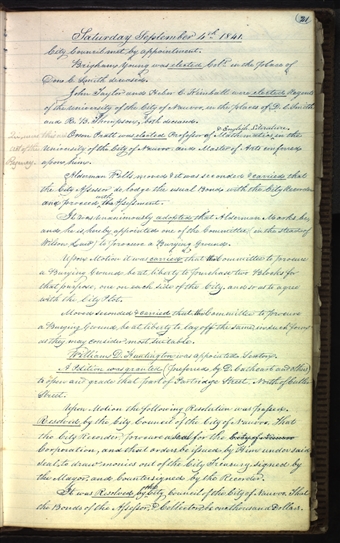 21
Saturday September 4th 1841.
City Council met by appointment.
Brigham Young was elected Col. in the place of
Don C. Smith deceased.
John Taylor and Heber C. Kimball were elected Regents
of the University of the City of Nauvoo, in the places of D. C. Smith
and R. B. Thompson, both deceased.
Orson Pratt was elected Professor of Mathematics
& English Literature,
in the
University of the City of Nauvoo. and Master of Arts conferred
upon him.
Alderman Wells, moved & it was seconded & carried that
the City Assessor, to lodge the usual Bonds with the City Recorder
and proceed with his Assessment.
It was unanimously adopted that Alderman Marks be,
and he is hereby appointed one of the Committee, (in the stead of
Wilson Law,) to procure a Burying Ground.
Upon Motion it was carried that the Committee to procure
a Burying Ground, be at liberty to purchase two Blocks for
that purpose, one on each side of the City, and so as to agree
with the City Plot.
Moved seconded & carried that the Committee to procure
a Burying Ground, be at liberty to lay off the same in such form
as they may consider most suitable.
William D. Huntington was appointed Sexton.
A Petition was granted (preferred by D. Cathcart and others)
to open and grade that part of Partridge Street, North of Cutler
Street.
Upon Motion the following Resolution was passed.
Resolved by the City Council of the City of Nauvoo, That
the City Recorder procure a seal for the City of Nauvoo
Corporation, and that orders be issued by Him under said
Seal, to draw monies out of the City Treasury, signed by
the Mayor, and Countersigned by the Recorder.
It was Resolved by the City Council of the City of Nauvoo, That
the Bonds of the Assessor & Collector be one thousand Dollars.